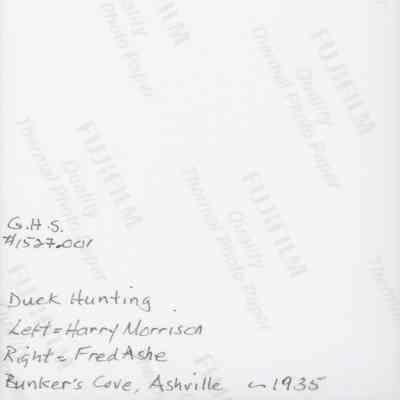 FUJIFILM
Quality
Thermal Photo Paper
FUJIFILM
Quality
Thermal Photo Paper
FUJIFILM
Quality
Thermal Photo Paper
G.H.S.
#1527.001
Duck Hunting
Left = Harry Morrison
Right = Fred Ashe
Bunker's Cove, Ashville ~ 1935